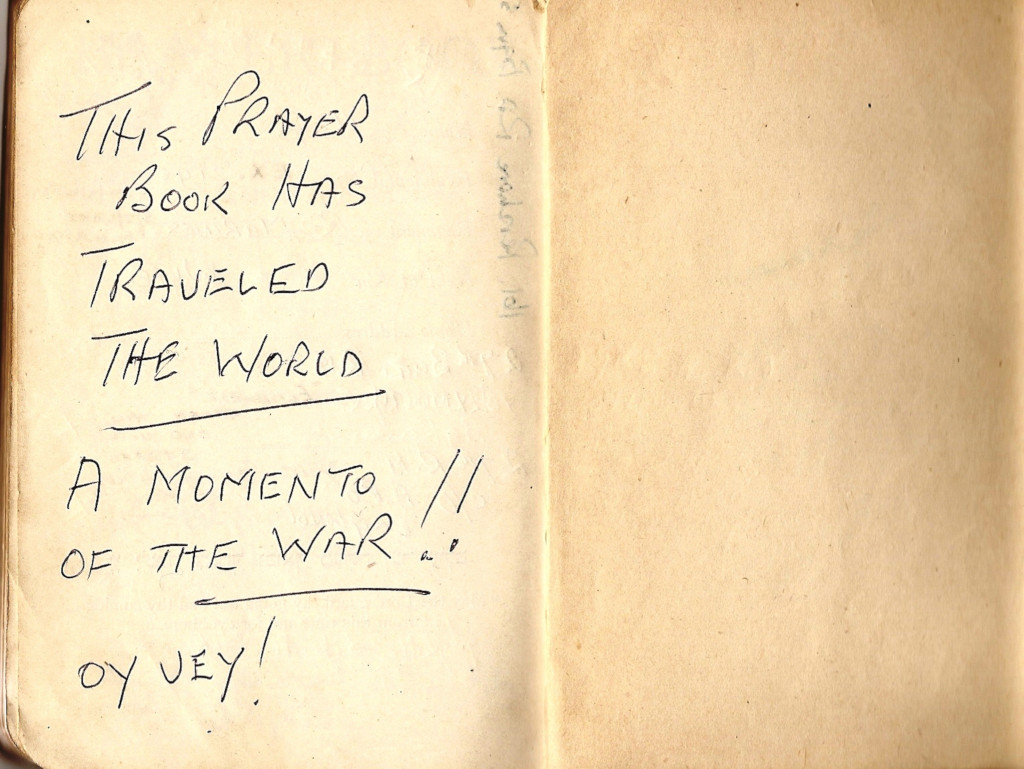 THIS PRAYER
BOOK HAS
TRAVELED
THE WORLD
A MOMENTO
OF THE WAR!!
OY VEY!